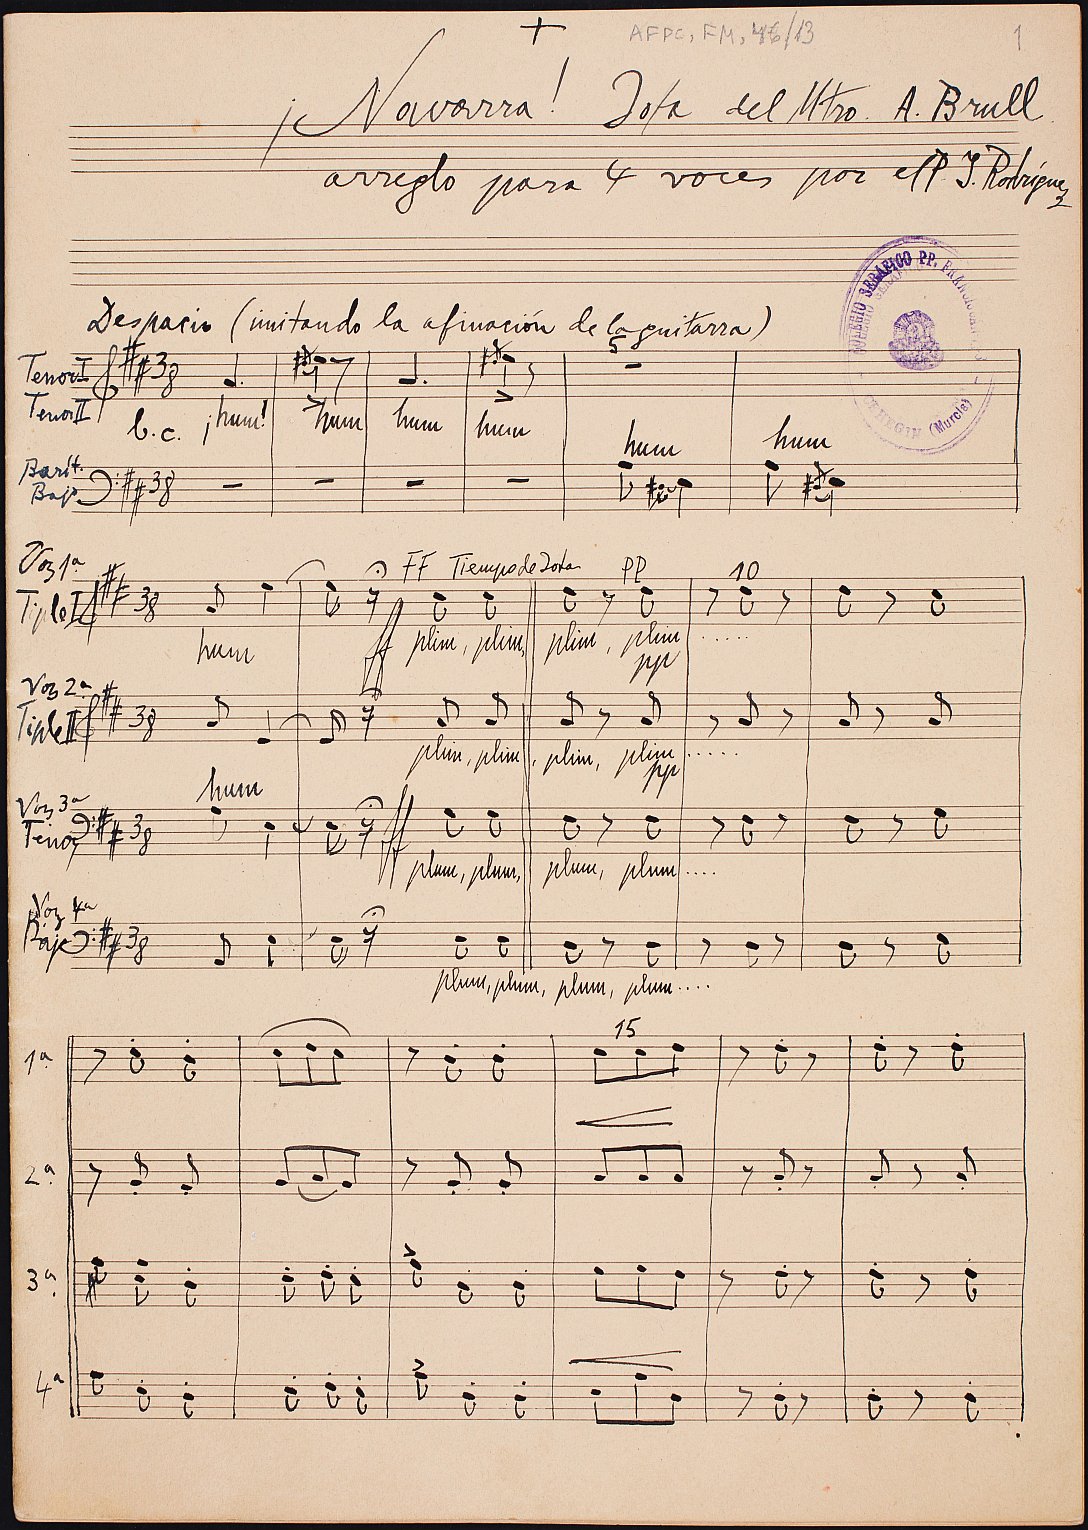 + AFPC, FM, 46/13 1
¡Navarra! Jota del Mtro. A. Brull
arreglo para 4 voces por el P. J. Rodríguez
COLEGIO SERAFICO PP. FRANCISCANOS
CEHEGIN (Murcia)
Despacio (imitando la afinación de la guitarra)
5
Tenor I 3 8
Tenor II b.c. ¡hum! hum hum hum
hum hum
Barít. Bajo 3 8
Voz 1ª FF Tiempo de Jota PP 10
Tiple I 3 8
hum ff plim, plim, plim, plim.....
pp
Voz 2ª
Tiple II 3 8
plim, plim, plim, plim.....
pp
hum
Voz 3ª
Tenor 3 8 ff
plum, plum, plum, plum....
Voz 4ª
Bajo 3 8
plum, plum, plum, plum....
15
1ª
2ª
3ª
4ª